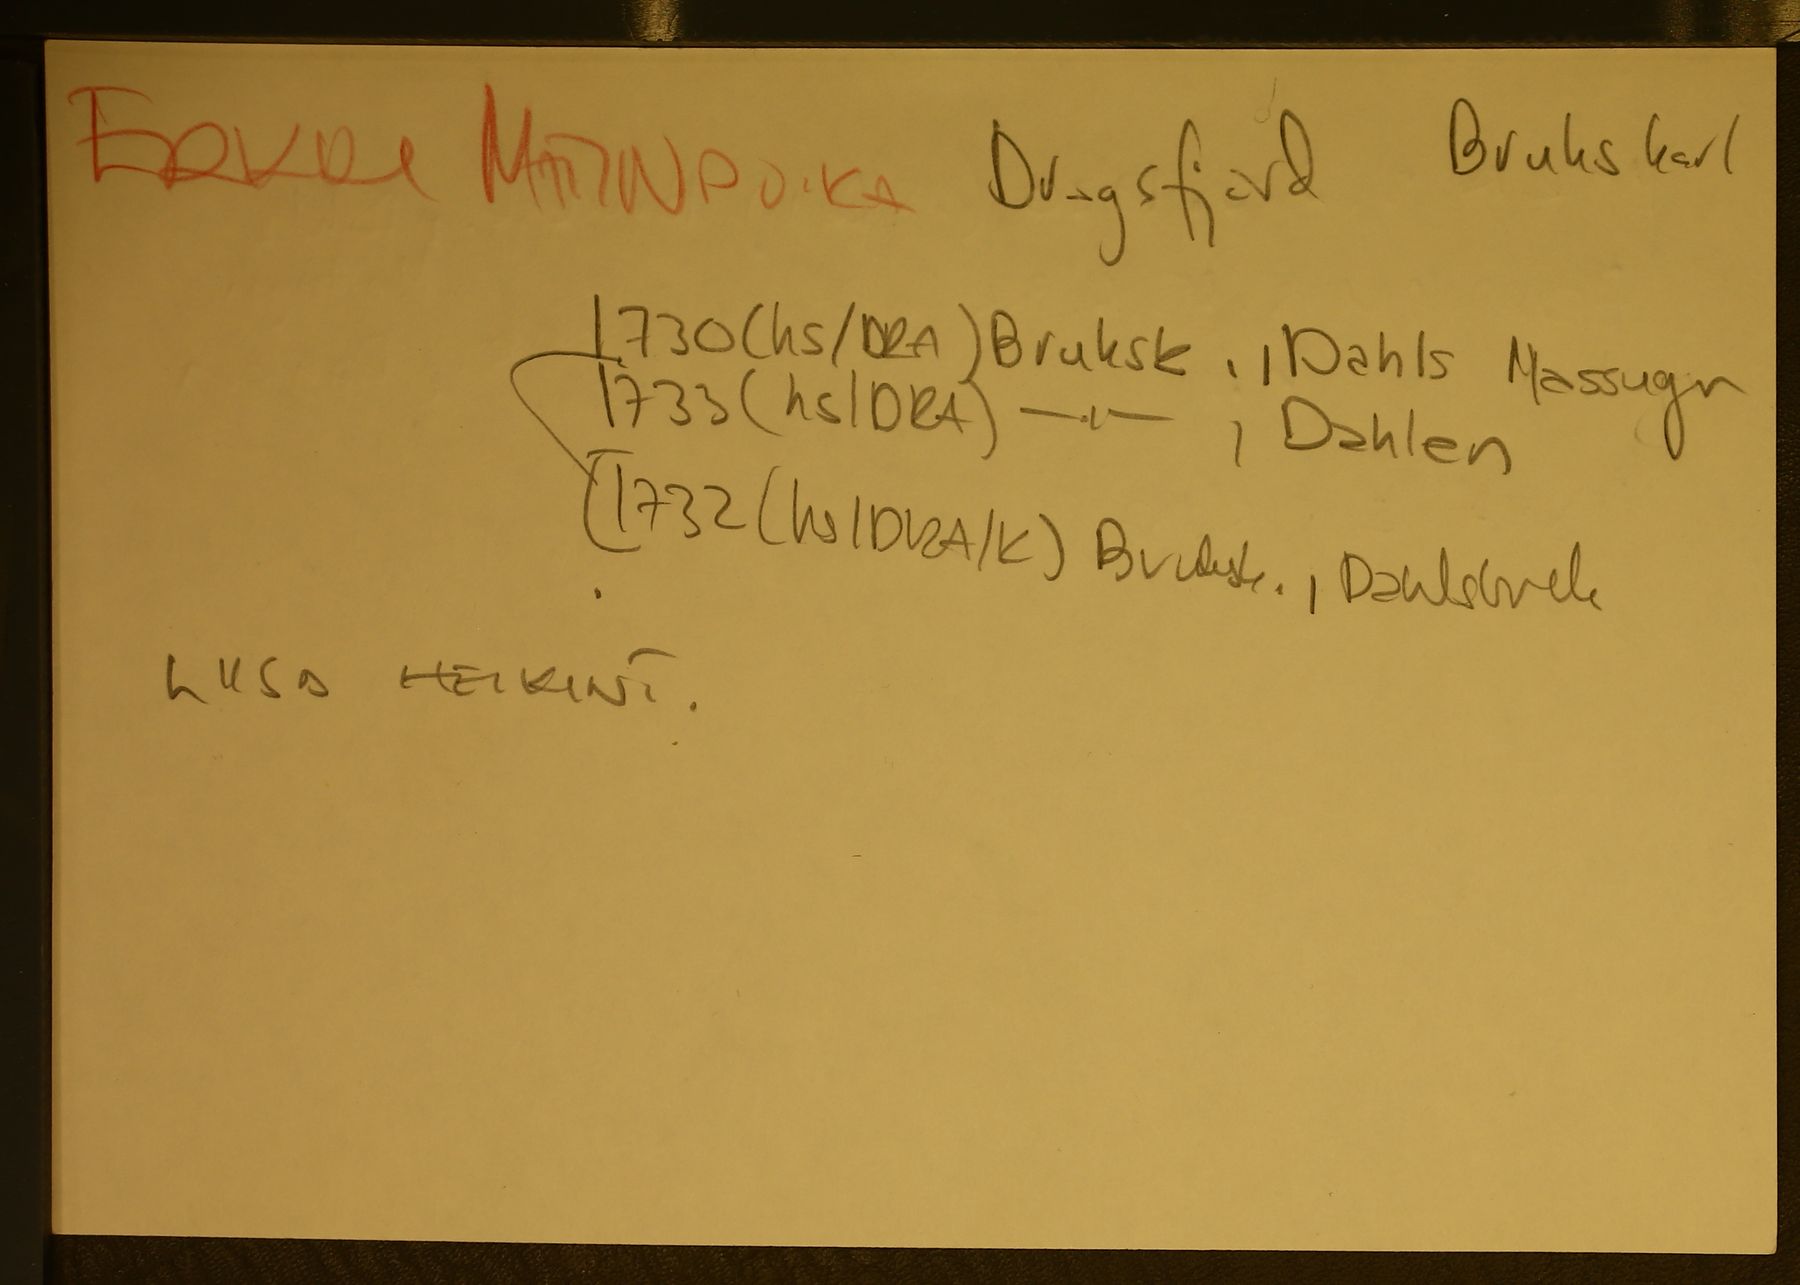 ERKKI MATINPOIKA Dragsfjärd Brukskarl
1730 (hs/DRA) Bruksk., Dahls Massugn
1733 (hs/DRA) —"— , Dahlen
(1732 (hs/DRA/K) Bruksk., Dahlsbruk
LIISA HEIKINT.